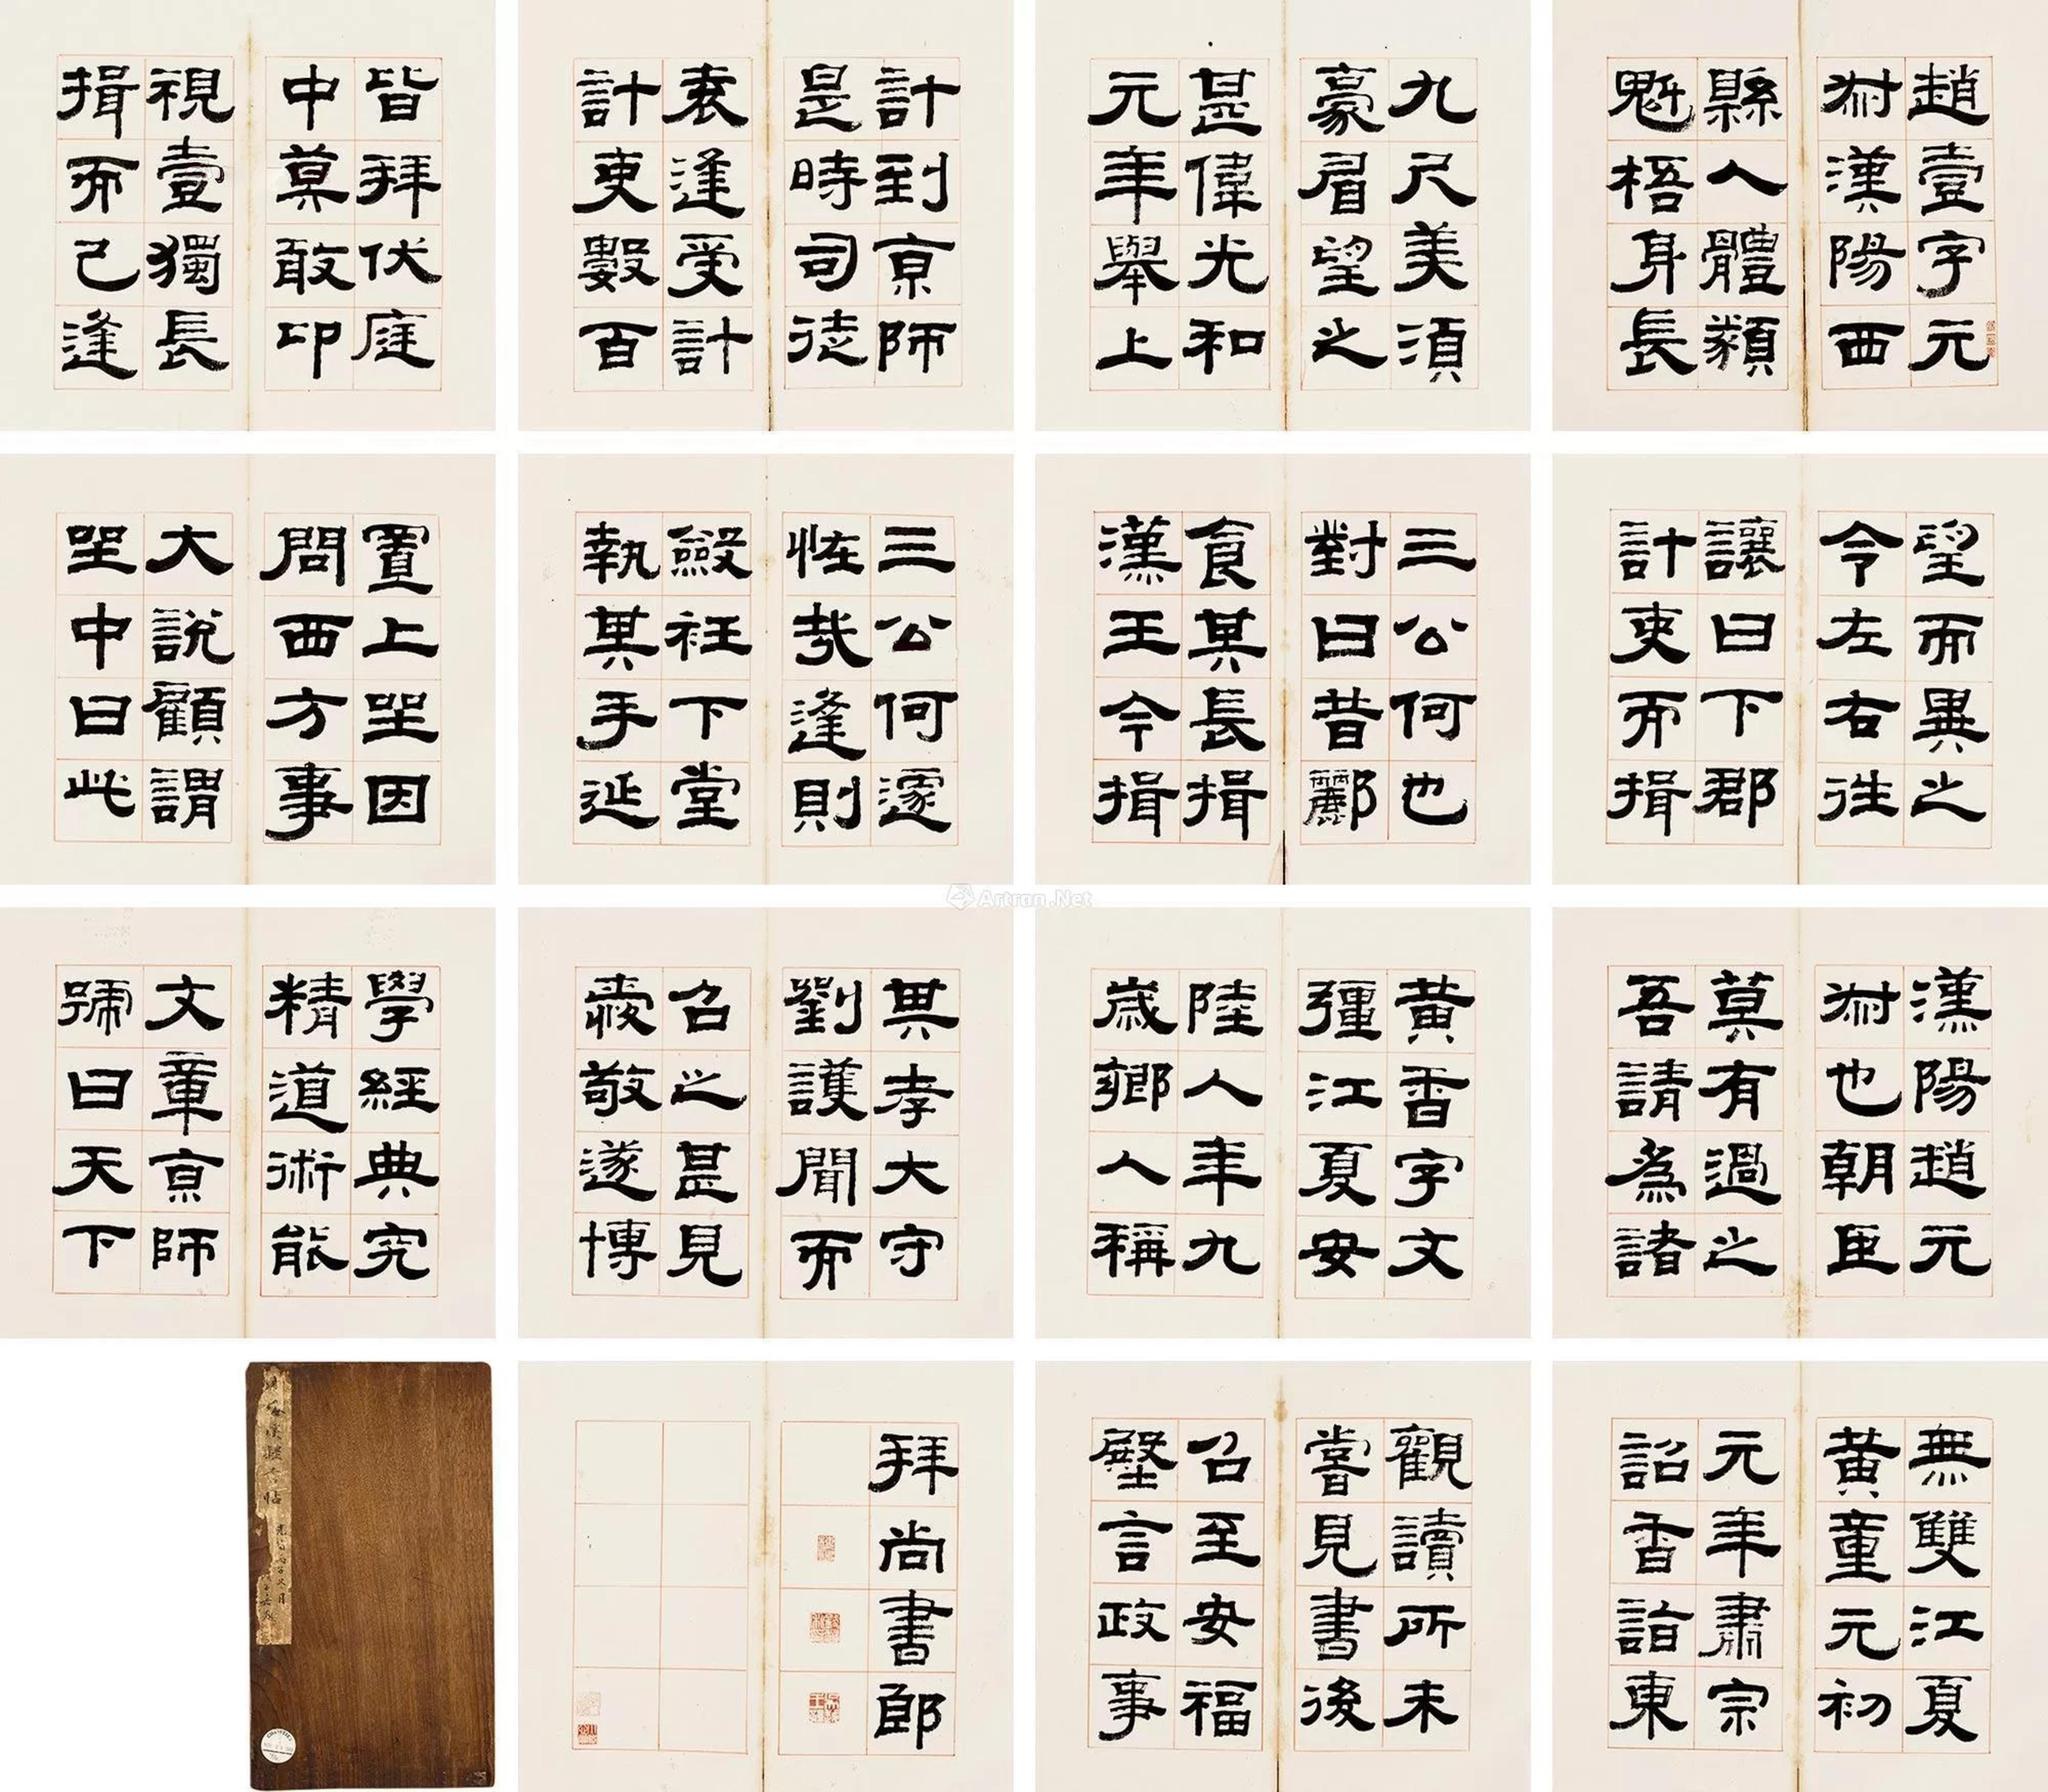 趙壹字元
叔漢陽西
縣人體貌
魁梧身長
九尺美須
豪眉望之
甚偉光和
元年舉上
計到京師
是時司徒
袁逢受計
計吏數百
皆拜伏庭
中莫敢卬
視壹獨長
揖而已逢
望而異之
令左右往
讓曰下郡
計吏而揖
三公何也
對曰昔酈
食其長揖
漢王今揖
三公何遽
怪哉逢則
斂衽下堂
執其手延
置上坐因
問西方事
大說顧謂
坐中曰此
漢陽趙元
叔也朝臣
莫有過之
吾請為諸
黃香字文
彊江夏安
陸人年九
歲鄉人稱
其孝大守
劉護聞而
召之甚見
愛敬遂博
學經典究
精道術能
文章京師
號曰天下
無雙江夏
黃童元初
元年肅宗
詔香詣東
觀讀所未
嘗見書後
召至安福
殿言政事
拜尚書郎
Artron.Net